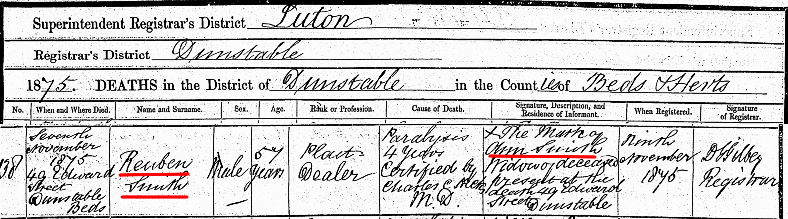 Superintendent Registrar's District Luton
Registrar's District Dunstable
1875. DEATHS in the District of Dunstable in the Counties of Beds & Herts
No. When and Where Died. Name and Surname. Sex. Age. Rank or Profession. Cause of Death. Signature, Description, and Residence of Informant. When Registered. Signature of Registrar.
138
Seventh
November
1875
49 Edward
Street
Dunstable
Beds
Reuben
Smith
Male
57
Years
Plait
Dealer
Paralysis
4 Years
Certified by
Charles C
M.D
X The Mark of
Ann Smith
Widow of deceased
present at the
death 49 Edward
Street Dunstable
Ninth
November
1875
D Gilbey
Registrar